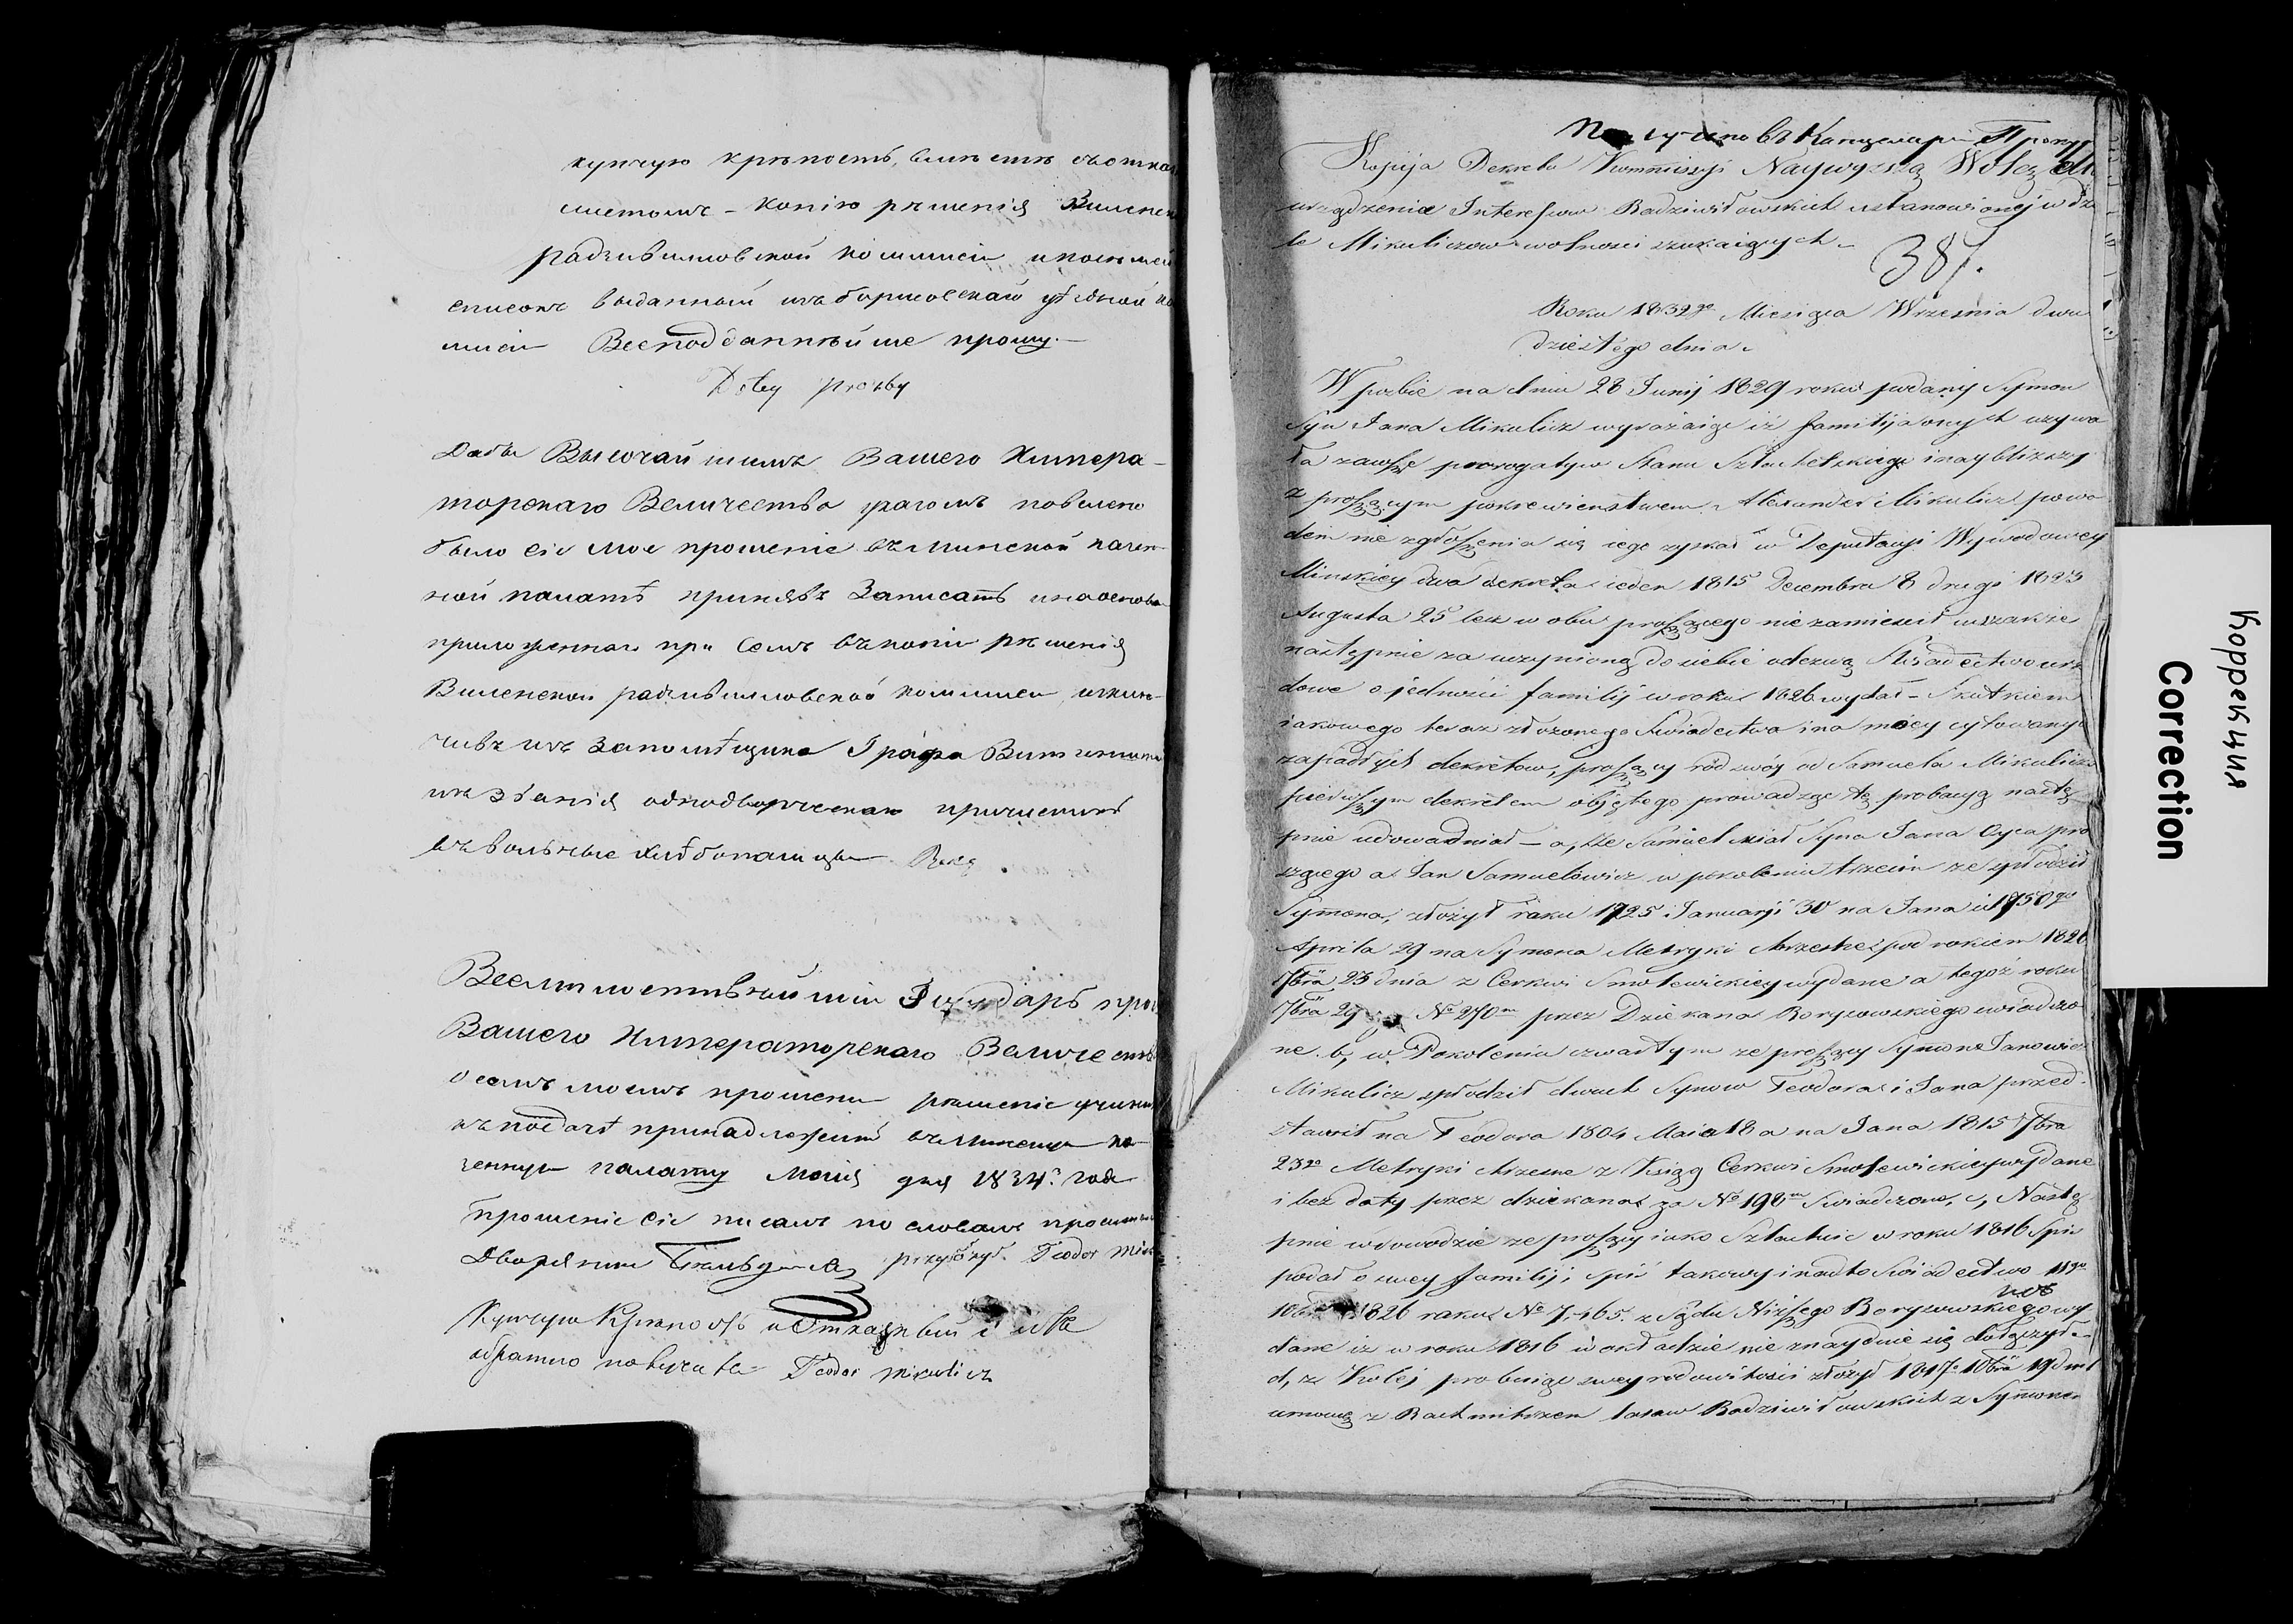 купчую крѣпость, вмѣстѣ съ отказ
листомъ - копію рѣшенія Виленск
радзивиловской коммисіи и посемей
списокъ выданный изъ борисовской уѣздной ко
мисіи Всеподданнѣйше прошу.—
Do tey prozby
Дабы Высочайшимъ Вашего Импера-
торскаго Величества указомъ повелено
было сіе мое прошеніе въ минской казен-
ной палатѣ принявъ Записать и на основа
приложеннаго при семъ въ копіи рѣшенія
Виленской радзивиловской коммисіи, исклю-
чивъ изъ За помѣщика Графа Витгенштей
изъ званія однодворческаго причислить
въ вольные хлѣбопашцы
Всемилостивѣйшій Государь прош
Вашего Императорскаго Величеств
о семъ моемъ прошеніи рѣшеніе учинит
къ подачѣ принадлежитъ въ минскую ка-
зенную палату Маія дня 1834. года
прошеніе сіе писалъ по словамъ просителя
Дворянинъ przyłożył Teodor Mik
Купчую Крѣпость и Отказный листъ
обратно получилъ Teodor Mikulicz
Получено въ Канцеляріи Проку
Kopija Dekretu Kommissyi Naywyższą Wolą dla
urządzenia Interessow Radziwiłłowskich ustanowionej w dzie
le Mikuliczow wolności szukaiących.
387.
Roku 1832go Miesiąca Września dwu
dziestego dnia.
W prozbie na dniu 28 Junij 1829 roku podany Symon
syn Jana Mikulicz wyrażaiąc iż familija onych używa
ła zawsze prerogatyw Stanu Szlacheckiego i nayblizszy
z proszącym pokrewienstwem Alexander Mikulicz powo
dem nie zgłoszenia się iego zyskał w Deputacyi Wywodowey
Minskiey dwa dekreta ieden 1815 Decembra 8 drugi 1823
Augusta 25 lecz w obu proszącego nie zamieścił wszakże
następnie za uczynioną do siebie odezwą Swiadectwo urzę
dowe o jedności familij w roku 1826 wydał - Skutkiem
iakowego teraz złożonego Swiadectwa i na mocy cytowanych
zapadłych dekretow, proszący ród swóy od Samuela Mikulicza
pierwszym dekretem objętego prowadząc tę probacyą nastę
pnie udowadniał - a, że Samuel miał Syna Jana Oyca pro
szącego a Jan Samuelowicz w pokoleniu trzecim ze spłodził
Symona, złożył roku 1725 Januarji 30 na Jana i 1750go
Aprila 29 na Symona Metryki chrzestne pod rokiem 1826
7bra 23 dnia z Cerkwi Smolewickiey wydane a tegoż roku
7bra 29 No 270m przez Dziekana Borysowskiego swiadczo
ne. b, w Pokoleniu czwartym ze proszący Symon Janowicz
Mikulicz spłodził dwuch Synow Teodora i Jana przed-
stawił na Teodora 1804 Maia 18 a na Jana 1815 7bra
23go Metryki chrzesne z Xiąg Cerkwi Smolewickiey wydane
i bez daty przez dziekana za No 198m swiadczone, c, Nastę
pnie w dowodzie ze proszący iako Szlachcic w roku 1816 Spis
podał o swey familij, spis takowy i nadto Swiadectwo 11go
10bra 1826 roku No 7,465. z Sądu Niższego Borysowskiego wy
dane iz w roku 1816 w okładzie nie znayduie się dołączył.
d, z Kolej probuiąc swey rodowitości złożył 1817 10bra 19 dnia
umowę z Rachmistrzem Radziwiłłowskich z Symonem
Коррекция
Correction